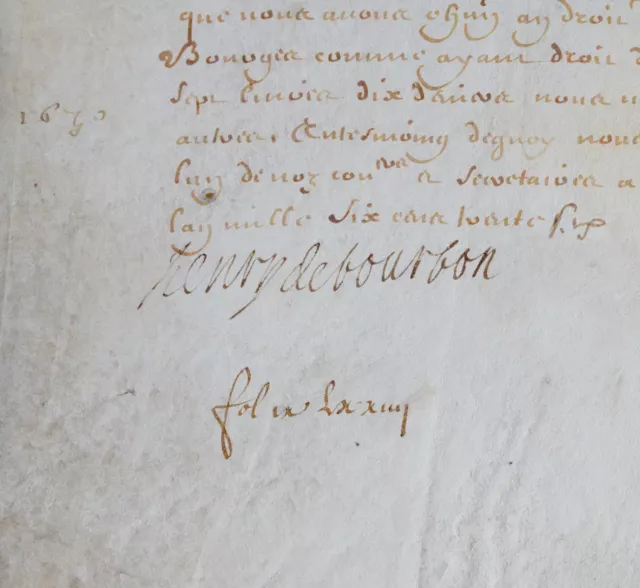 que nous avons ehuy au droit
Bourges comme ayant droit d
sept livres dix deniers nous
1630
autres. En tesmoing de quoy nous
l'un de noz con^ers & secretaires a
l'an mille six cens trente six
henry de bourbon
fol ix lxxiiij